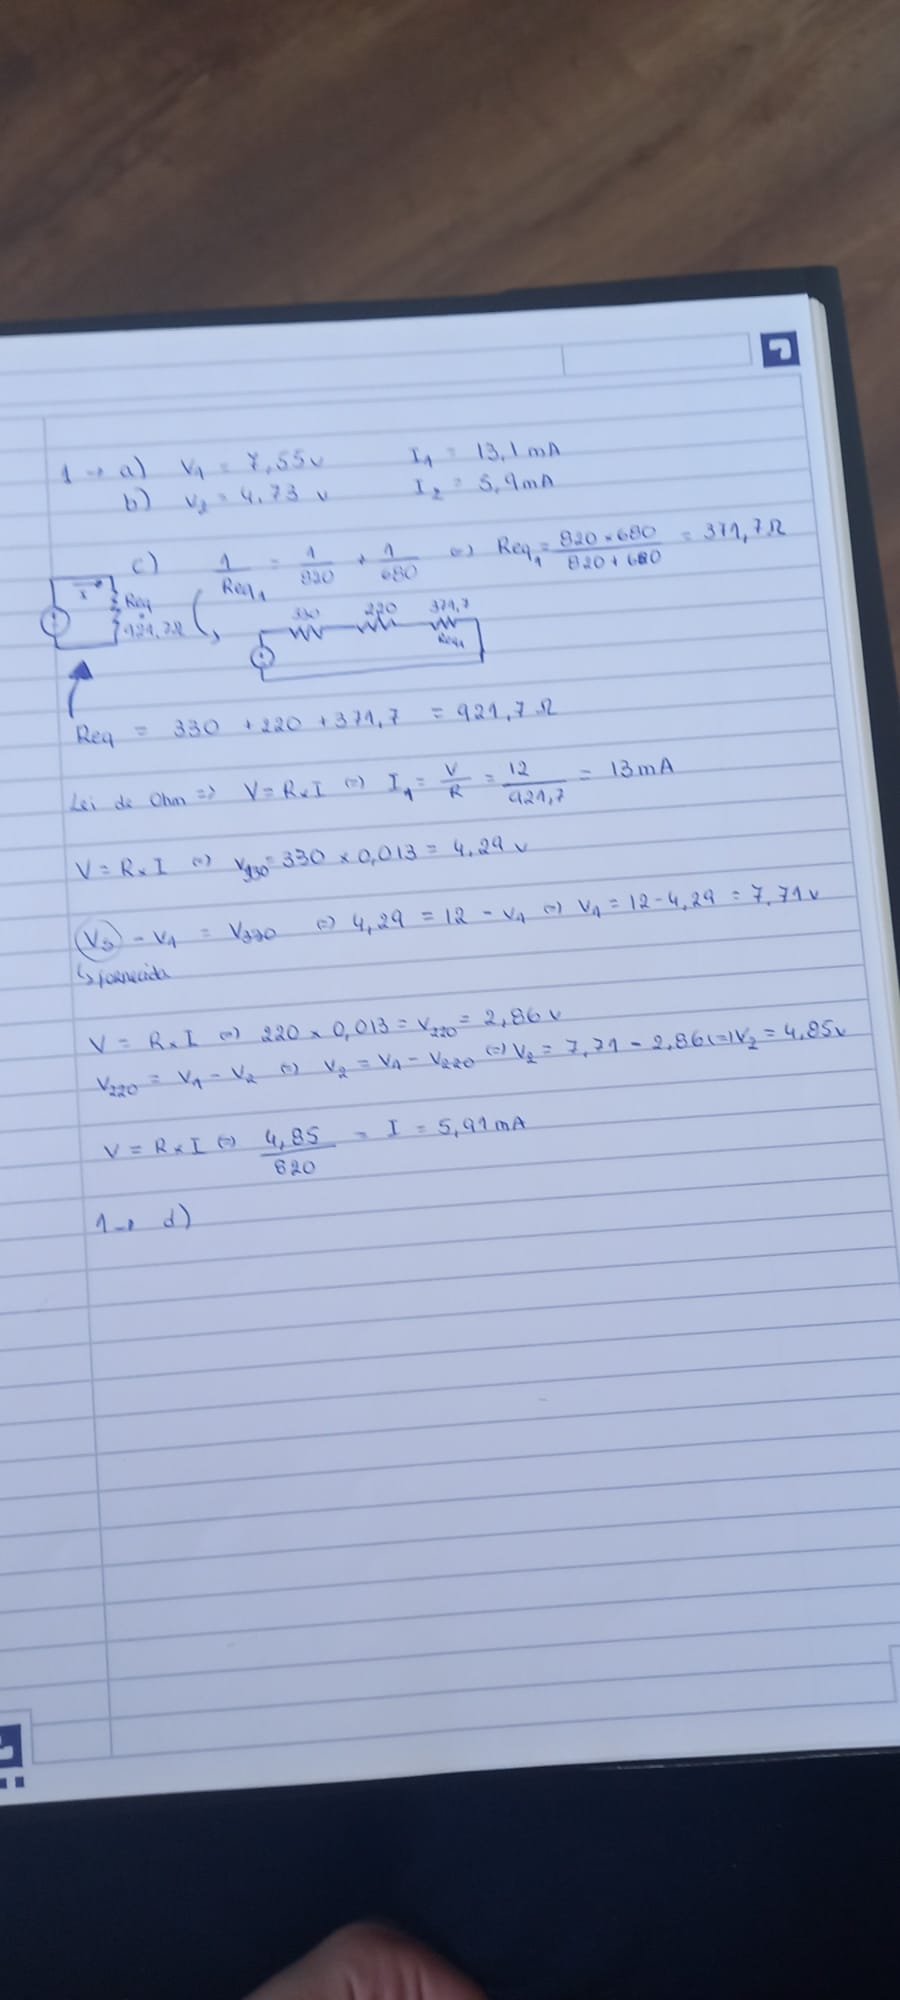 1 → a) V1 = 7,55v I1 = 13,1mA
b) V2 = 4,73 v I2 = 5,9mA
c) 1/Req1 = 1/820 + 1/680 (=) Req1 = 820×680/820+680 = 371,7Ω
I Req = 921,7Ω
330 220 371,7 Req1
Req = 330 + 220 + 371,7 = 921,7 Ω
Lei de Ohm => V = R×I (=) I1 = V/R = 12/921,7 = 13mA
V = R×I (=) V330 = 330 × 0,013 = 4,29 v
Vs - V1 = V330 (=) 4,29 = 12 - V1 (=) V1 = 12 - 4,29 = 7,71v
↳ fornecida
V = R×I (=) 220 × 0,013 = V220 = 2,86v
V220 = V1 - V2 (=) V2 = V1 - V220 (=) V2 = 7,71 - 2,86 (=) V2 = 4,85v
V = R×I (=) 4,85/820 = I = 5,91mA
1 → d)